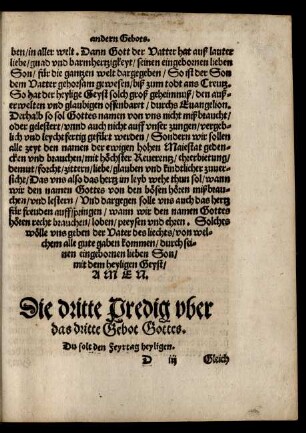 andern Gebots.
ben/in aller welt. Dann Gott der Vatter hat auß lauter
liebe/gnad vnd barmhertzigkeyt/seinen eingebornen lieben
Son/für die gantzen welt dargegeben/So ist der Son
dem Vatter gehorsam gewesen/biß zum todt ans Creutz.
So hat der heylige Geyst solch groß geheimnuß/den auß=
erwelten vnd glaubigen offenbart/durchs Euangelion.
Derhalb so sol Gottes namen von vns nicht mißbraucht/
oder gelestert/vnnd auch nicht auff vnser zungen/vergeb=
lich vnd leychtfertig gefürt werden/Sondern wir sollen
alle zeyt den namen der ewigen hohen Maiestat geden=
cken vnd brauchen/mit höchster Reuerentz/eheerbietung/
demut/forcht/zittern/liebe/glauben vnd kindtlicher zuuer=
sicht/Das vns also das hertz im leyb wehe thun sol/wann
wir den namen Gottes von den bösen hören mißbrau=
chen/vnd lestern/Vnd dargegen solle vns auch das hertz
für freuden auffspringen/wann wir den namen Gottes
hören recht brauchen/loben/preysen vnd ehren. Solches
wölle vns geben der Vatter des liechts/von wel=
chem alle gute gaben kommen/durch sei=
nen eingebornen lieben Son/
mit dem heyligen Geyst/
AMEN.
Die dritte Predig vber
das dritte Gebot Gottes.
Du solt den Feyrtag heyligen.
D iij Gleich